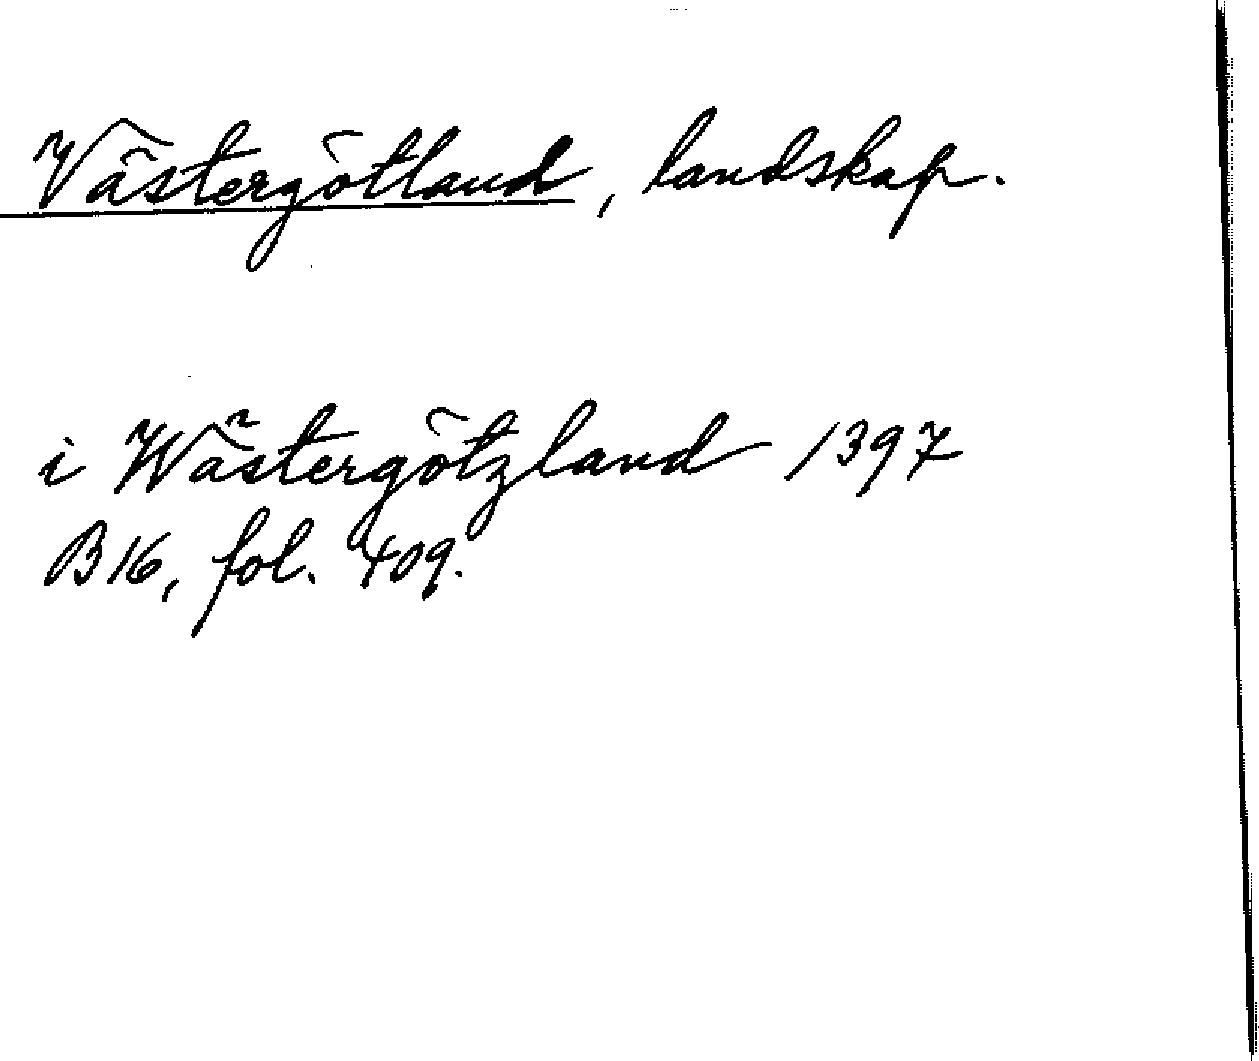 Västergötland, landskap.
i Wästergötzland 1397
B16, fol. 409.